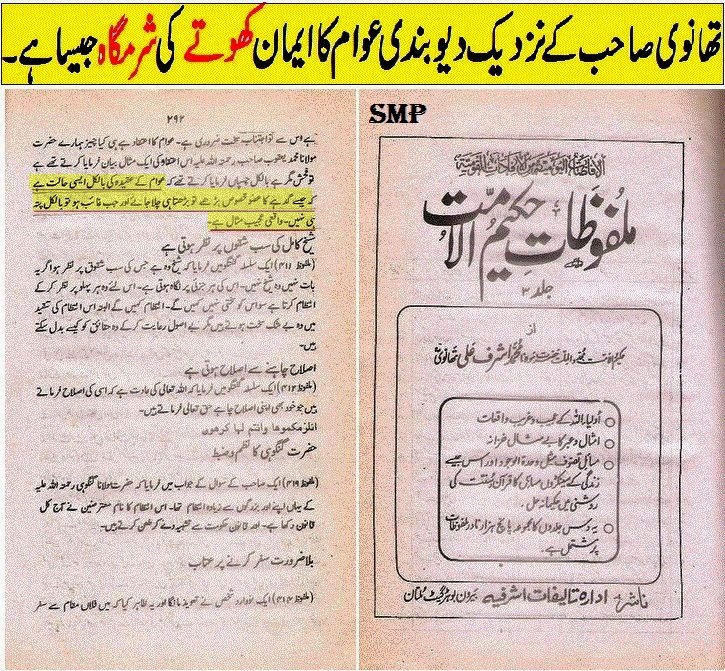 تھانوی صاحب کے نزدیک دیوبندی عوام کا ایمان کھوتے کی شرمگاہ جیسا ہے۔
۲۹۲
ہے اس سے تو اجتناب سخت ضروری ہے۔ عوام کا اعتقاد ہے ہی کیا چیز ہمارے حضرت
مولانا محمد یعقوب صاحب رحمۃ اللہ علیہ اس اعتقاد کی ایک مثال بیان فرمایا کرتے تھے ہے
تو فحش مگر ہے بالکل چسپاں فرمایا کرتے تھے کہ عوام کے عقیدہ کی بالکل ایسی حالت ہے
کہ جیسے گدھے کا عضو مخصوص بڑھے تو بڑھتا ہی چلا جائے اور جب غائب ہو تو بالکل پتہ
ہی نہیں۔ واقعی عجیب مثال ہے۔
شیخ کامل کی سب شقوں پر نظر ہوتی ہے
(ملفوظ ۴۱۱) ایک سلسلہ گفتگو میں فرمایا کہ شیخ وہ ہے جس کی سب شقوق پر نظر ہو اگر یہ
بات نہیں ہے۔ اس کی ہر جزئی پر نگاہ ہوتی ہے۔ اس لئے وہ ہر پہلو پر نظر کر کے
انتظام کرتا ہے سو اس کو سختی نہیں کہیں گے۔ انتظام کہیں گے البتہ اس انتظام کی تنفیذ
میں وہ بے شک سخت ہوتے ہیں مگر بے اصول رعایت کر کے وہ حقائق کو کیسے بدل سکتے
ہیں۔
اصلاح چاہنے سے اصلاح ہوتی ہے
(ملفوظ ۴۱۲) ایک سلسلہ گفتگو میں فرمایا کہ اللہ تعالی کی عادت ہے کہ اسی کی اصلاح فرماتے
ہیں جو خود بھی اپنی اصلاح چاہے حق تعالی فرماتے ہیں۔
انلزمکموھا وانتم لھا کرھون
حضرت گنگوہی کا نظم و ضبط
(ملفوظ ۴۱۳) ایک صاحب کے سوال کے جواب میں فرمایا کہ حضرت مولانا گنگوہی رحمۃ اللہ علیہ
کے یہاں اپنے اور بزرگوں سے زیادہ انتظام تھا۔ اس انتظام کا نام معترضین نے آج کل
قانون رکھا ہے۔ اور قانون حکومت سے تشبیہ دے کر طعن کرتے ہیں۔
بلا ضرورت سفر کرنے پر عتاب
(ملفوظ ۴۱۴) ایک نووارد شخص نے تعویذ مانگا اور یہ ظاہر کیا کہ میں فلاں مقام سے سفر
SMP
الافاضات الیومیہ من الافادات القومیہ
ملفوظات حکیم الامت
جلد ۲
از
حکیم الامت مجدد الملت حضرت مولانا محمد اشرف علی تھانوی
اولیاء اللہ کے عجیب و غریب واقعات
امثال و عبر کا بے مثال خزانہ
مسائل تصوف مثل وحدۃ الوجود اور اس جیسے
زندگی کے سینکڑوں مسائل کا قرآن و سنت کی
روشنی میں حکیمانہ حل۔
یہ دس جلدوں کا مجموعہ پانچ ہزار نادر ملفوظات
پر مشتمل ہے۔
ناشر: ادارہ تالیفات اشرفیہ بیرون بوہڑ گیٹ ملتان